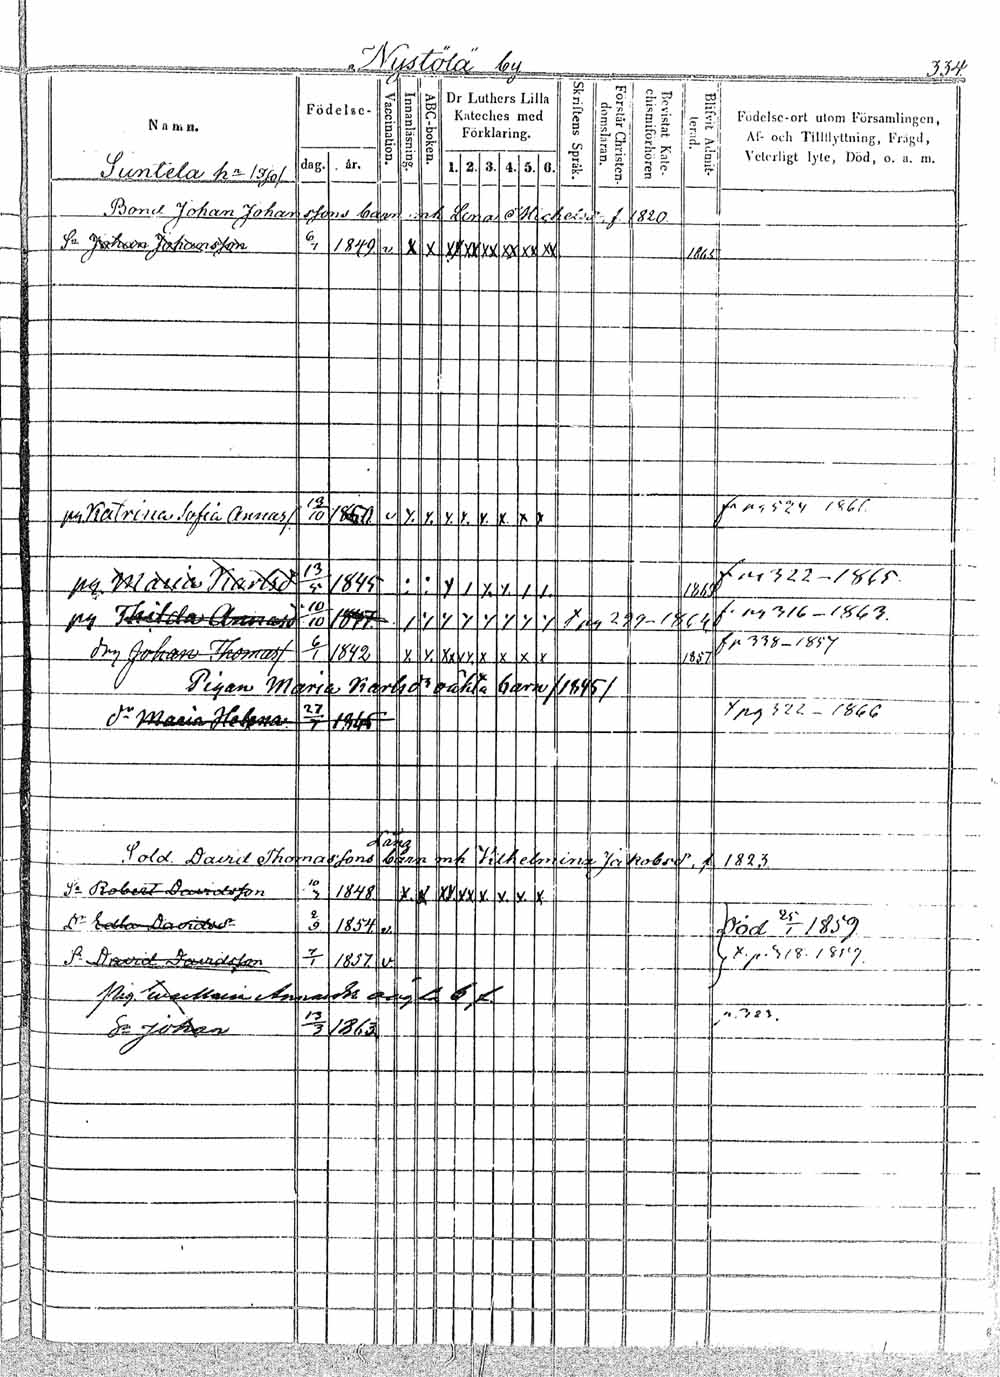 "Nystölä" by
334.
Namn.
Födelse-
dag. år.
Vaccination.
Innanläsning.
ABC-boken.
Dr Luthers Lilla
Kateches med
Förklaring.
1. 2. 3. 4. 5. 6.
Skriftens Språk.
Förstår Christen-
domsläran.
Bevistat Kate-
chismiförhören
Blifvit Admit-
terad.
Födelse-ort utom Församlingen,
Af- och Tillflyttning, Frägd,
Veterligt lyte, Död, o. a. m.
Suntela
Bond Johan Johanssons barn mh Lena f. 1820
Sn Johan Johansson 6/1 1849 v x x xx xx xx xx xx xx 1865
pg Katrina Sofia Annasf. 10 v x x x x x x x x 524 1861.
pg Maria Karlsd 13/5 1845 1863 322 – 1865.
pg Thilda Annasd 10/10 pg 299–1864 pg 316 – 1863.
Johan Thomasf 6/1 1842 x x x x x x 1857 338–1857
Pigan Maria Karlsds oäkta barn /1845/
dr Maria Helena 27 1865 pg 322 – 1866
Lång
Sold. David Thomassons barn mh Vilhelmina Jakobsd. f. 1823
Sn Robert Davidsson 10 1848 x x xx xx x x x x
Dr Edla Davidsd 2/9 1854 v. Död 25/1 1859
S. David Davidsson 7/1 1857 v 1859.
Pig. Annasdr b f.
Sn Johan 13/3 1863 p. 323.